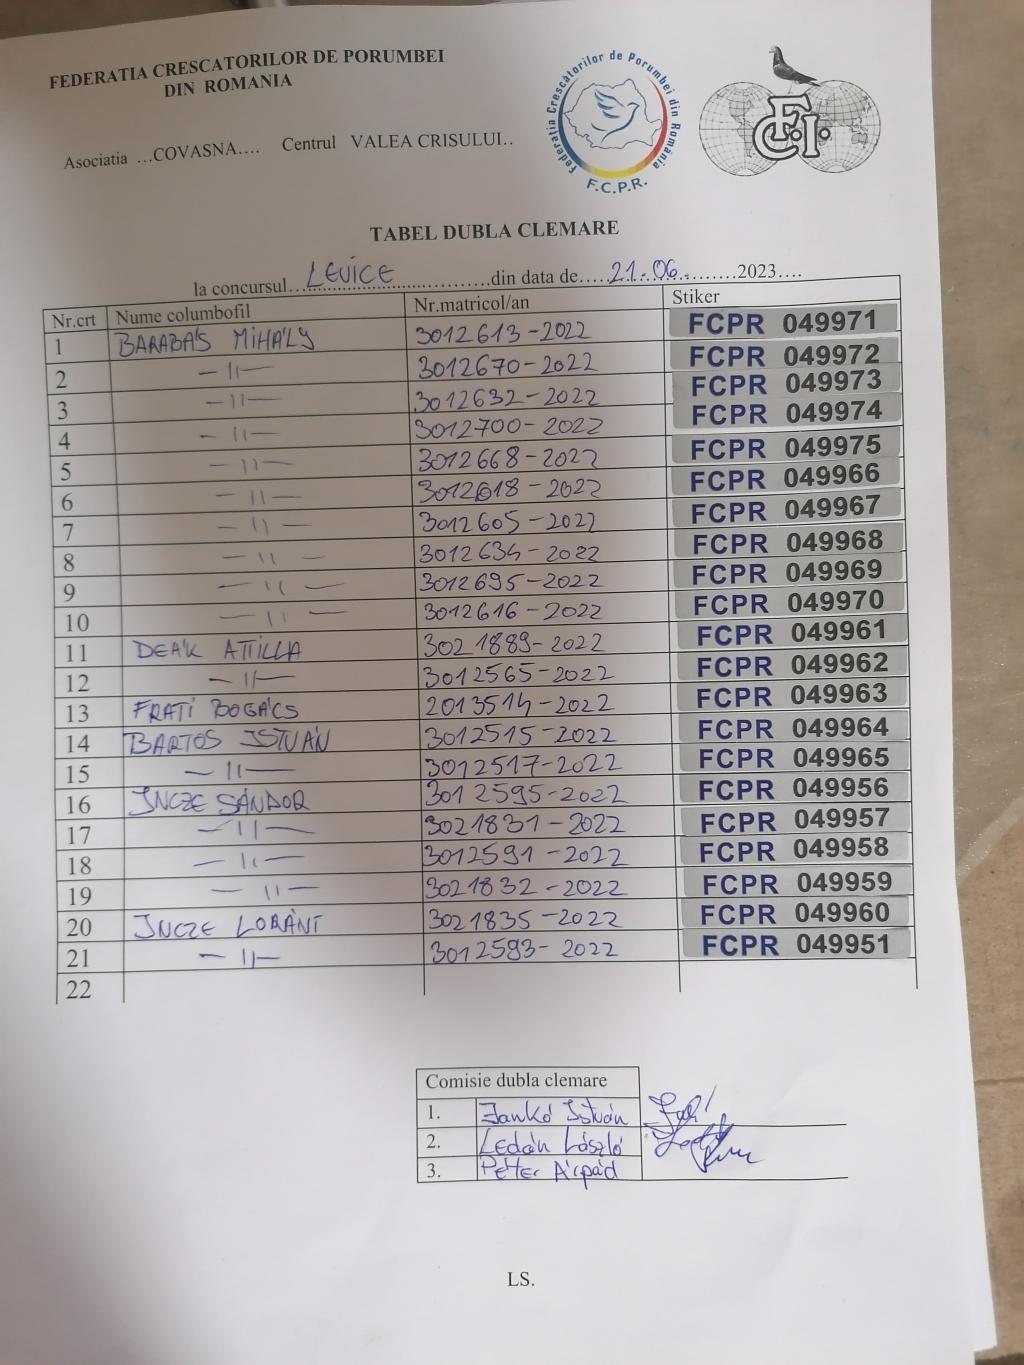 FEDERATIA CRESCATORILOR DE PORUMBEI
DIN ROMANIA
Federatia Crescătorilor de Porumbei din România
F.C.P.R.
F.C.I.
Asociatia ...COVASNA.... Centrul VALEA CRISULUI..
TABEL DUBLA CLEMARE
la concursul...LEVICE...din data de.....21.06.........2023....
Nr.crt Nume columbofil Nr.matricol/an Stiker
1 BARABÁS MIHÁLY 3012613-2022 FCPR 049971
2 -11- 3012670-2022 FCPR 049972
3 -11- 3012632-2022 FCPR 049973
4 -11- 3012700-2022 FCPR 049974
5 -11- 3012668-2022 FCPR 049975
6 -11- 3012618-2022 FCPR 049966
7 -11- 3012605-2022 FCPR 049967
8 -11- 3012634-2022 FCPR 049968
9 -11- 3012695-2022 FCPR 049969
10 -11- 3012616-2022 FCPR 049970
11 DEÁK ATTILLA 3021889-2022 FCPR 049961
12 -11- 3012565-2022 FCPR 049962
13 FRATI BOGÁCS 2013514-2022 FCPR 049963
14 BARTOS ISTVÁN 3012515-2022 FCPR 049964
15 -11- 3012517-2022 FCPR 049965
16 INCZE SÁNDOR 3012595-2022 FCPR 049956
17 -11- 3021831-2022 FCPR 049957
18 -11- 3012591-2022 FCPR 049958
19 -11- 3021832-2022 FCPR 049959
20 INCZE LORÁNT 3021835-2022 FCPR 049960
21 -11- 3012593-2022 FCPR 049951
22
Comisie dubla clemare
1. Jankó István
2. Ledán László
3. Péter Árpád
LS.